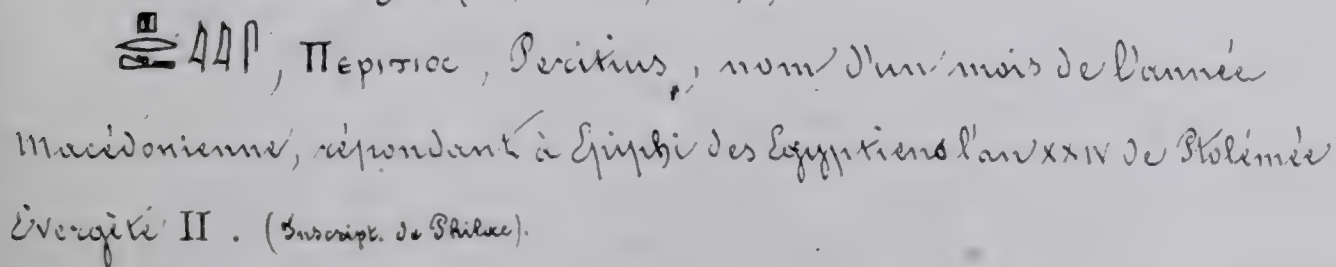 𓊪𓂋𓏏𓇋𓇋𓋴, Περιτιος, Peritius, nom d'un mois de l'année
Macédonienne, répondant à Epiphi des Egyptiens l'an XXIV de Ptolémée
Évergète II. (Inscript. de Philae).